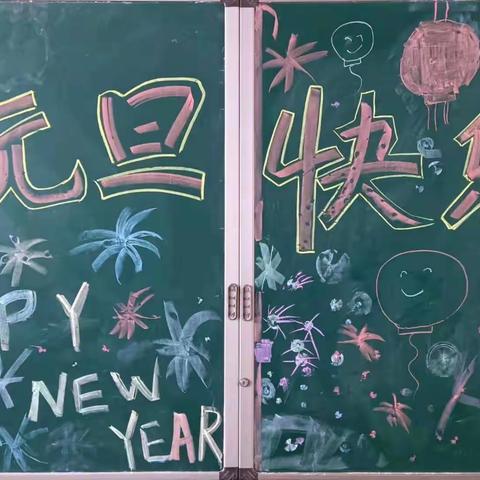 元旦快
PY
NEW
YEAR